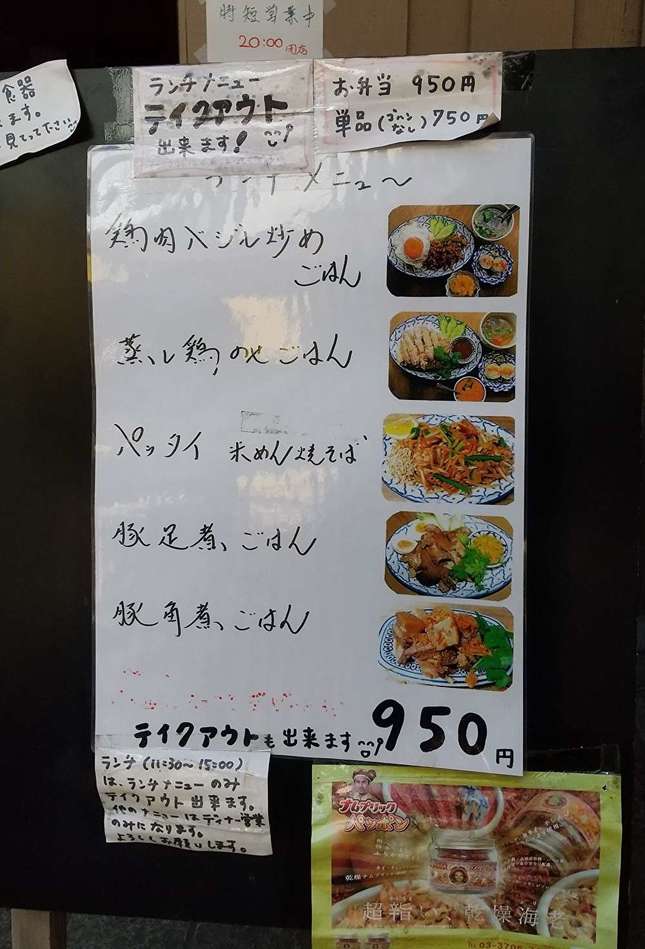 時短営業中
20:00閉店
食器
ます。
見てって下さい
ランチメニュー
テイクアウト
出来ます!
お弁当 950円
単品(ゴハンなし)750円
ランチメニュ〜
鶏肉バジル炒め
ごはん
蒸し鶏のせごはん
パッタイ 米めん焼そば
豚足煮、ごはん
豚角煮、ごはん
テイクアウトも出来ます 950円
ランチ(11:30〜15:00)
は、ランチメニューのみ
テイクアウト出来ます。
他のメニューはディナー営業
のみになります。
よろしくお願いします。
ナムプリック
パッポン
超旨い 乾燥海老
03-370